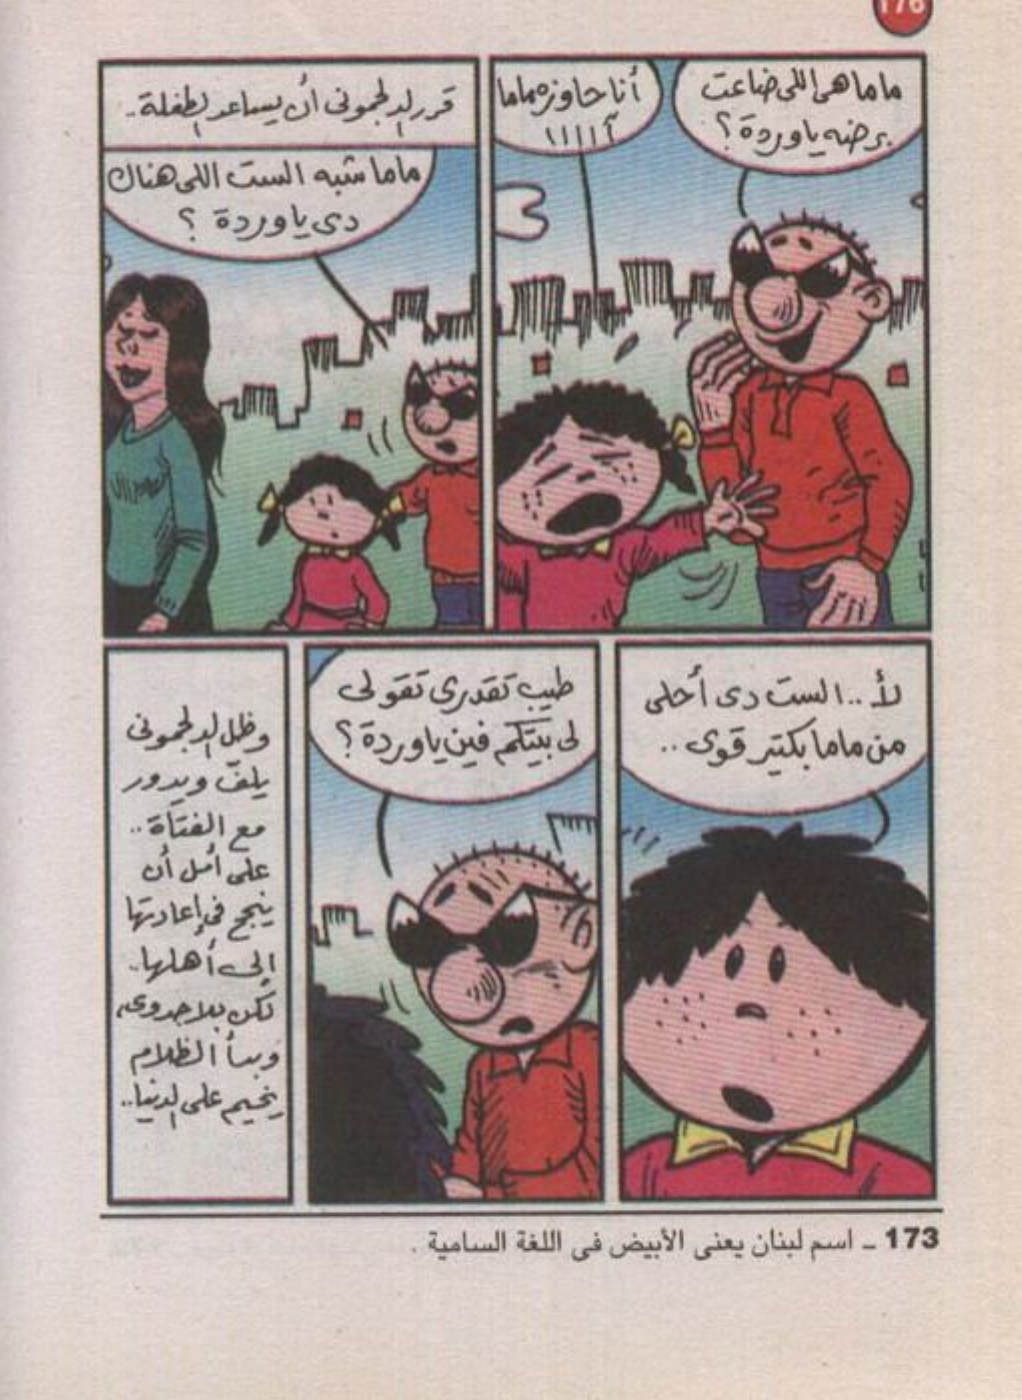 176
ماما هى اللى ضاعت
برضه ياوردة؟
أنا حاوزه ماما
آااااا
قرر الدلجمونى أن يساعد الطفلة..
ماما شبه الست اللى هناك
دى ياوردة ؟
لأ .. الست دى أحلى
من ماما بكتير قوى ..
طيب تقدرى تقولى
لى بيتكم فين ياوردة ؟
وظل الدلجمونى
يلف ويدور
مع الفتاة ..
على أمل أن
ينجح فى إعادتها
إلى أهلها..
لكن بلا جدوى،
وبدأ الظلام
يخيم على الدنيا..
173 ـ اسم لبنان يعنى الأبيض فى اللغة السامية .